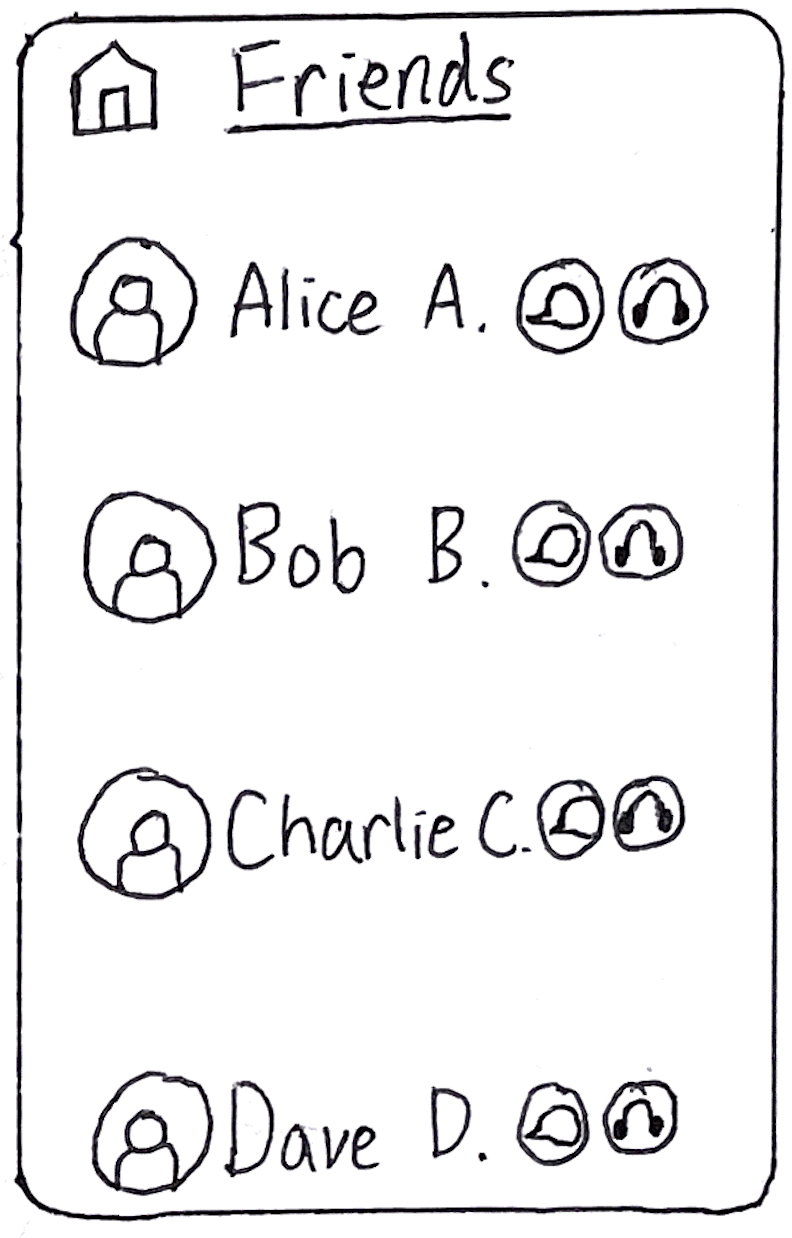 Friends
Alice A.
Bob B.
Charlie C.
Dave D.